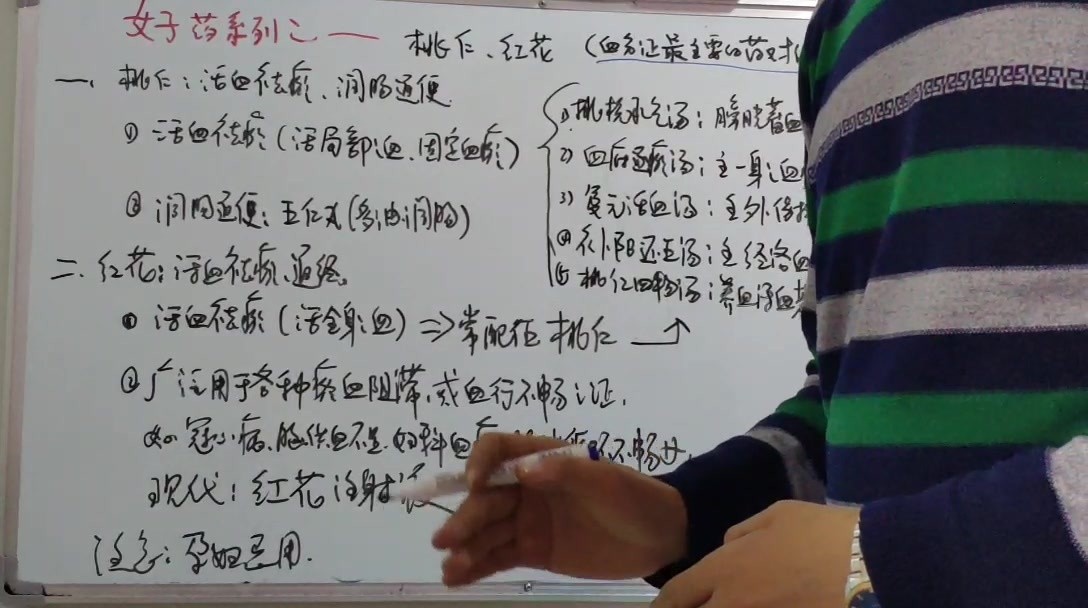 女子药系列之一 桃仁、红花 (血分证最主要的药对
一、桃仁：活血祛瘀、润肠通便
① 活血祛瘀(活局部之血、固定血瘀)
② 润肠通便：五仁丸(多油润肠)
1) 桃核承气汤：膀胱蓄血
2) 血府逐瘀汤：主一身之血
3) 复元活血汤：主外伤
④ 补阳还五汤：主经络血
⑤ 桃红四物汤：养血活血
二、红花：活血祛瘀、通经。
① 活血祛瘀(活全身之血) ⇒ 常配伍桃仁
② 广泛用于各种瘀血阻滞、或血行不畅之证.
如冠心病、脑供血不足、妇科血 不畅
现代：红花注射液
注意：孕妇忌用.